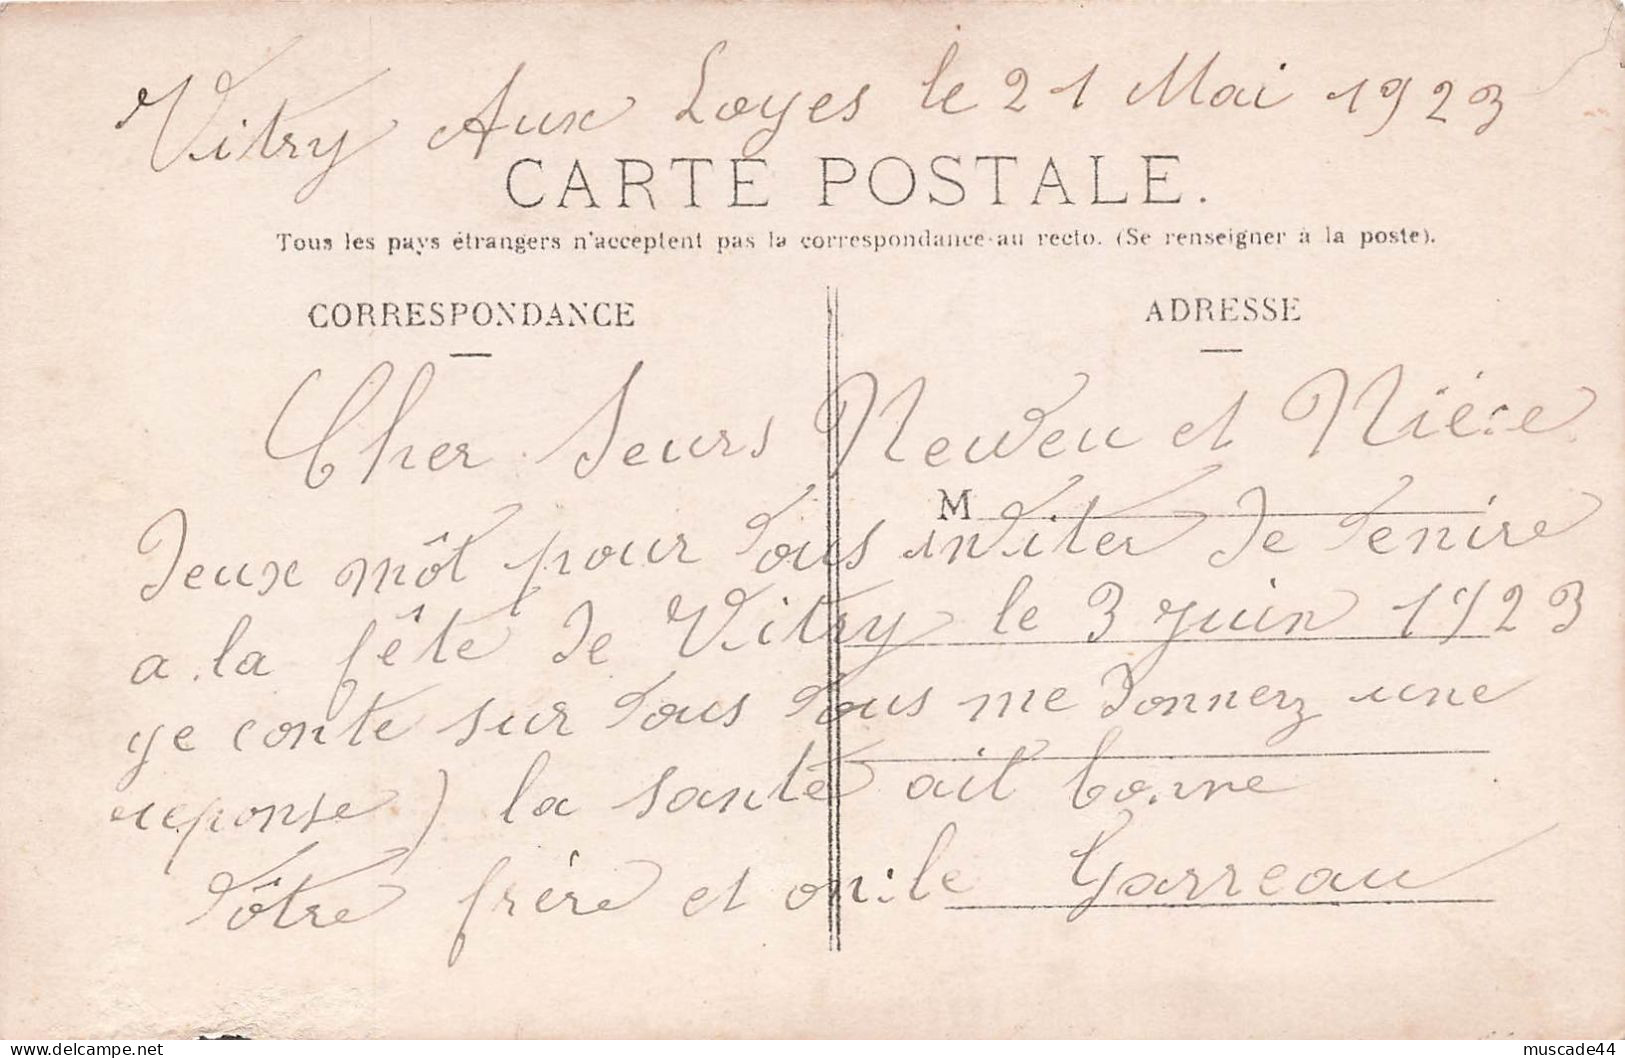 Vitry Aux Loges le 21 Mai 1923
CARTE POSTALE.
Tous les pays étrangers n'acceptent pas la correspondance au recto. (Se renseigner à la poste).
CORRESPONDANCE
ADRESSE
Cher Seurs Neuveu et Nièce
M
Deux môt pour vous inviter de venire
a la fête de Vitry le 3 juin 1923
ye conte sur vous vous me donnerz une
reponse) la santé ait bonne
vôtre frère et oncle Garreau
muscade44